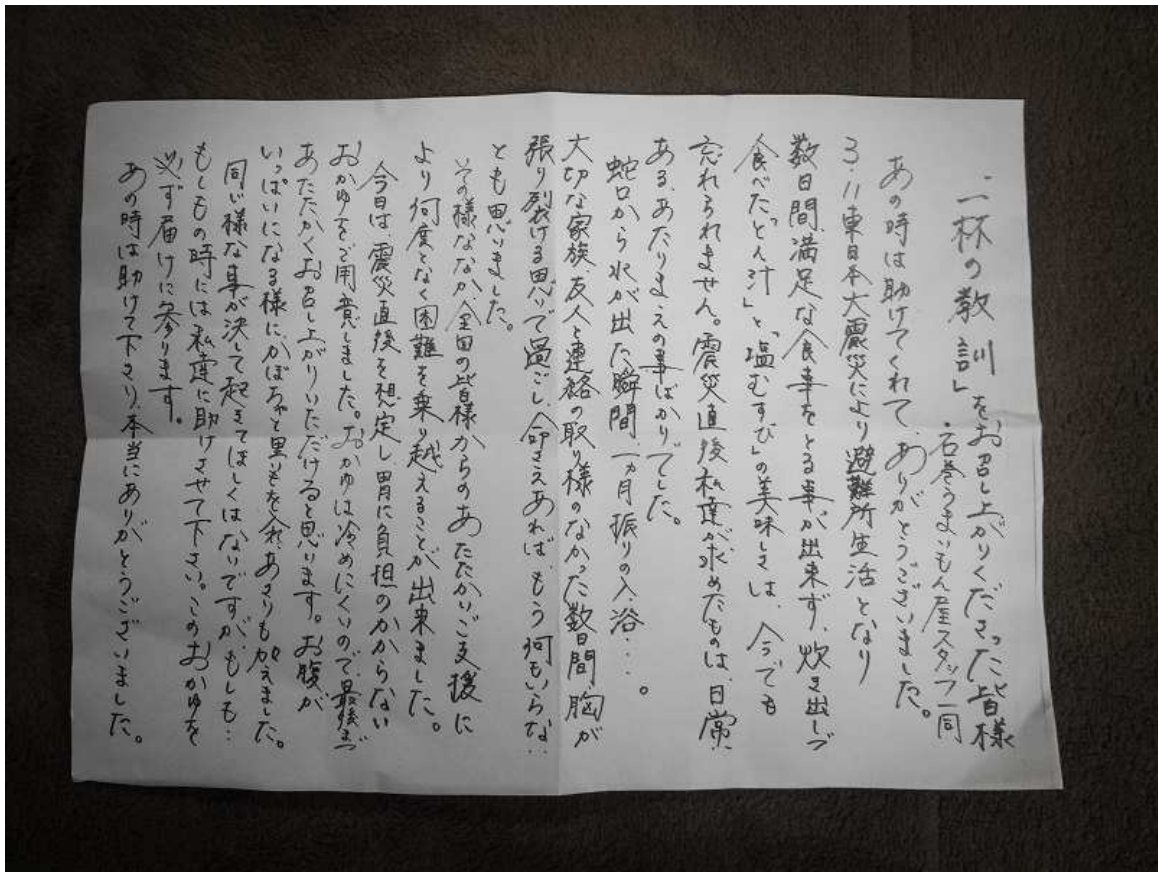 「一杯の教訓」をお召し上がりくださった皆様
・石巻うまいもん屋スタッフ一同
あの時は助けてくれて、ありがとうございました。
3.11東日本大震災により避難所生活となり
数日間満足な食事をとる事が出来ず、炊き出しで
食べた「とん汁」と「塩むすび」の美味しさは、今でも
忘れられません。震災直後私達が求めたものは、日常
ある、あたりまえの事ばかりでした。
蛇口から水が出た瞬間 一ヵ月振りの入浴・・・。
大切な家族、友人と連絡の取り様のなかった数日間 胸が
張り裂ける思いで過ごし、命さえあれば、もう何もいらない
とも思いました。
その様ななか、全国の皆様からのあたたかいご支援に
より何度となく困難を乗り越えることが出来ました。
今日は、震災直後を想定し、胃に負担のかからない
おかゆをご用意しました。おかゆは冷めにくいので、最後まで
あたたかくお召し上がりいただけると思います。お腹が
いっぱいになる様に、かぼちゃと里いもを入れ、あさりも加えました。
同じ様な事が決して起きてほしくはないですが、もしも・・
もしもの時には私達に助けさせて下さい。このおかゆを
必ず届けに参ります。
あの時は助けて下さり、本当にありがとうございました。